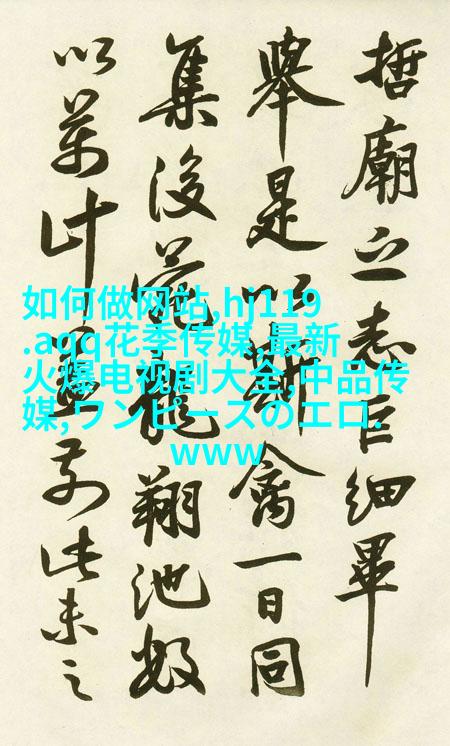 哲廟之志巨細畢
舉是以禽一日同
集後龍翔池
以萬計前此未之
如何做网站,hj119
.aqq花季传媒,最新
火爆电视剧大全,中品传
媒,ワンピースのエロ.
www